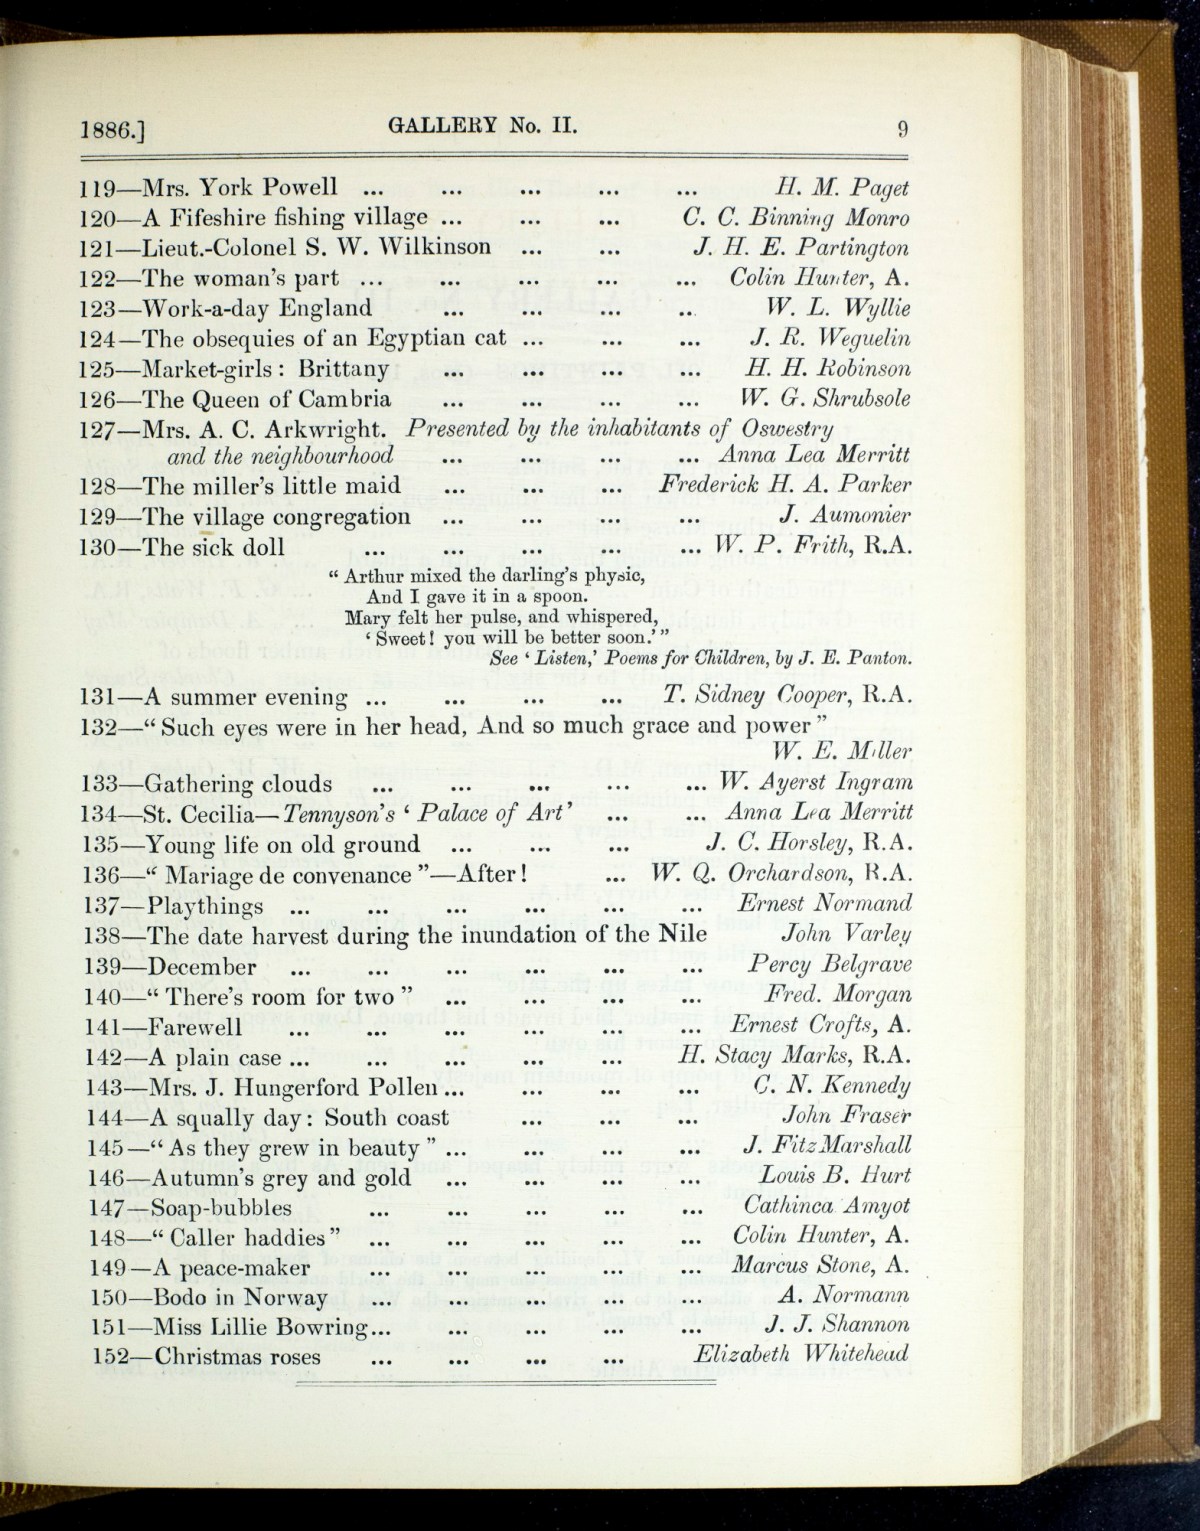 1886.] GALLERY No. II. 9
119—Mrs. York Powell ... ... ... ... ... H. M. Paget
120—A Fifeshire fishing village ... ... ... C. C. Binning Monro
121—Lieut.-Colonel S. W. Wilkinson ... ... J. H. E. Partington
122—The woman's part ... ... ... ... ... Colin Hunter, A.
123—Work-a-day England ... ... ... ... W. L. Wyllie
124—The obsequies of an Egyptian cat ... ... ... J. R. Weguelin
125—Market-girls: Brittany ... ... ... ... H. H. Robinson
126—The Queen of Cambria ... ... ... ... W. G. Shrubsole
127—Mrs. A. C. Arkwright. Presented by the inhabitants of Oswestry
and the neighbourhood ... ... ... ... Anna Lea Merritt
128—The miller's little maid ... ... ... Frederick H. A. Parker
129—The village congregation ... ... ... ... J. Aumonier
130—The sick doll ... ... ... ... ... W. P. Frith, R.A.
“Arthur mixed the darling's physic,
And I gave it in a spoon.
Mary felt her pulse, and whispered,
‘Sweet! you will be better soon.’”
See ‘Listen,’ Poems for Children, by J. E. Panton.
131—A summer evening ... ... ... ... T. Sidney Cooper, R.A.
132—“Such eyes were in her head, And so much grace and power”
W. E. Miller
133—Gathering clouds ... ... ... ... ... W. Ayerst Ingram
134—St. Cecilia—Tennyson's ‘Palace of Art’ ... ... Anna Lea Merritt
135—Young life on old ground ... ... ... J. C. Horsley, R.A.
136—“Mariage de convenance”—After! ... W. Q. Orchardson, R.A.
137—Playthings ... ... ... ... ... ... Ernest Normand
138—The date harvest during the inundation of the Nile John Varley
139—December ... ... ... ... ... ... Percy Belgrave
140—“There's room for two” ... ... ... ... Fred. Morgan
141—Farewell ... ... ... ... ... ... Ernest Crofts, A.
142—A plain case ... ... ... ... ... H. Stacy Marks, R.A.
143—Mrs. J. Hungerford Pollen ... ... ... ... C. N. Kennedy
144—A squally day: South coast ... ... ... John Fraser
145—“As they grew in beauty” ... ... ... ... J. FitzMarshall
146—Autumn's grey and gold ... ... ... ... Louis B. Hurt
147—Soap-bubbles ... ... ... ... ... Cathinca Amyot
148—“Caller haddies” ... ... ... ... ... Colin Hunter, A.
149—A peace-maker ... ... ... ... ... Marcus Stone, A.
150—Bodo in Norway ... ... ... ... ... A. Normann
151—Miss Lillie Bowring... ... ... ... ... J. J. Shannon
152—Christmas roses ... ... ... ... Elizabeth Whitehead